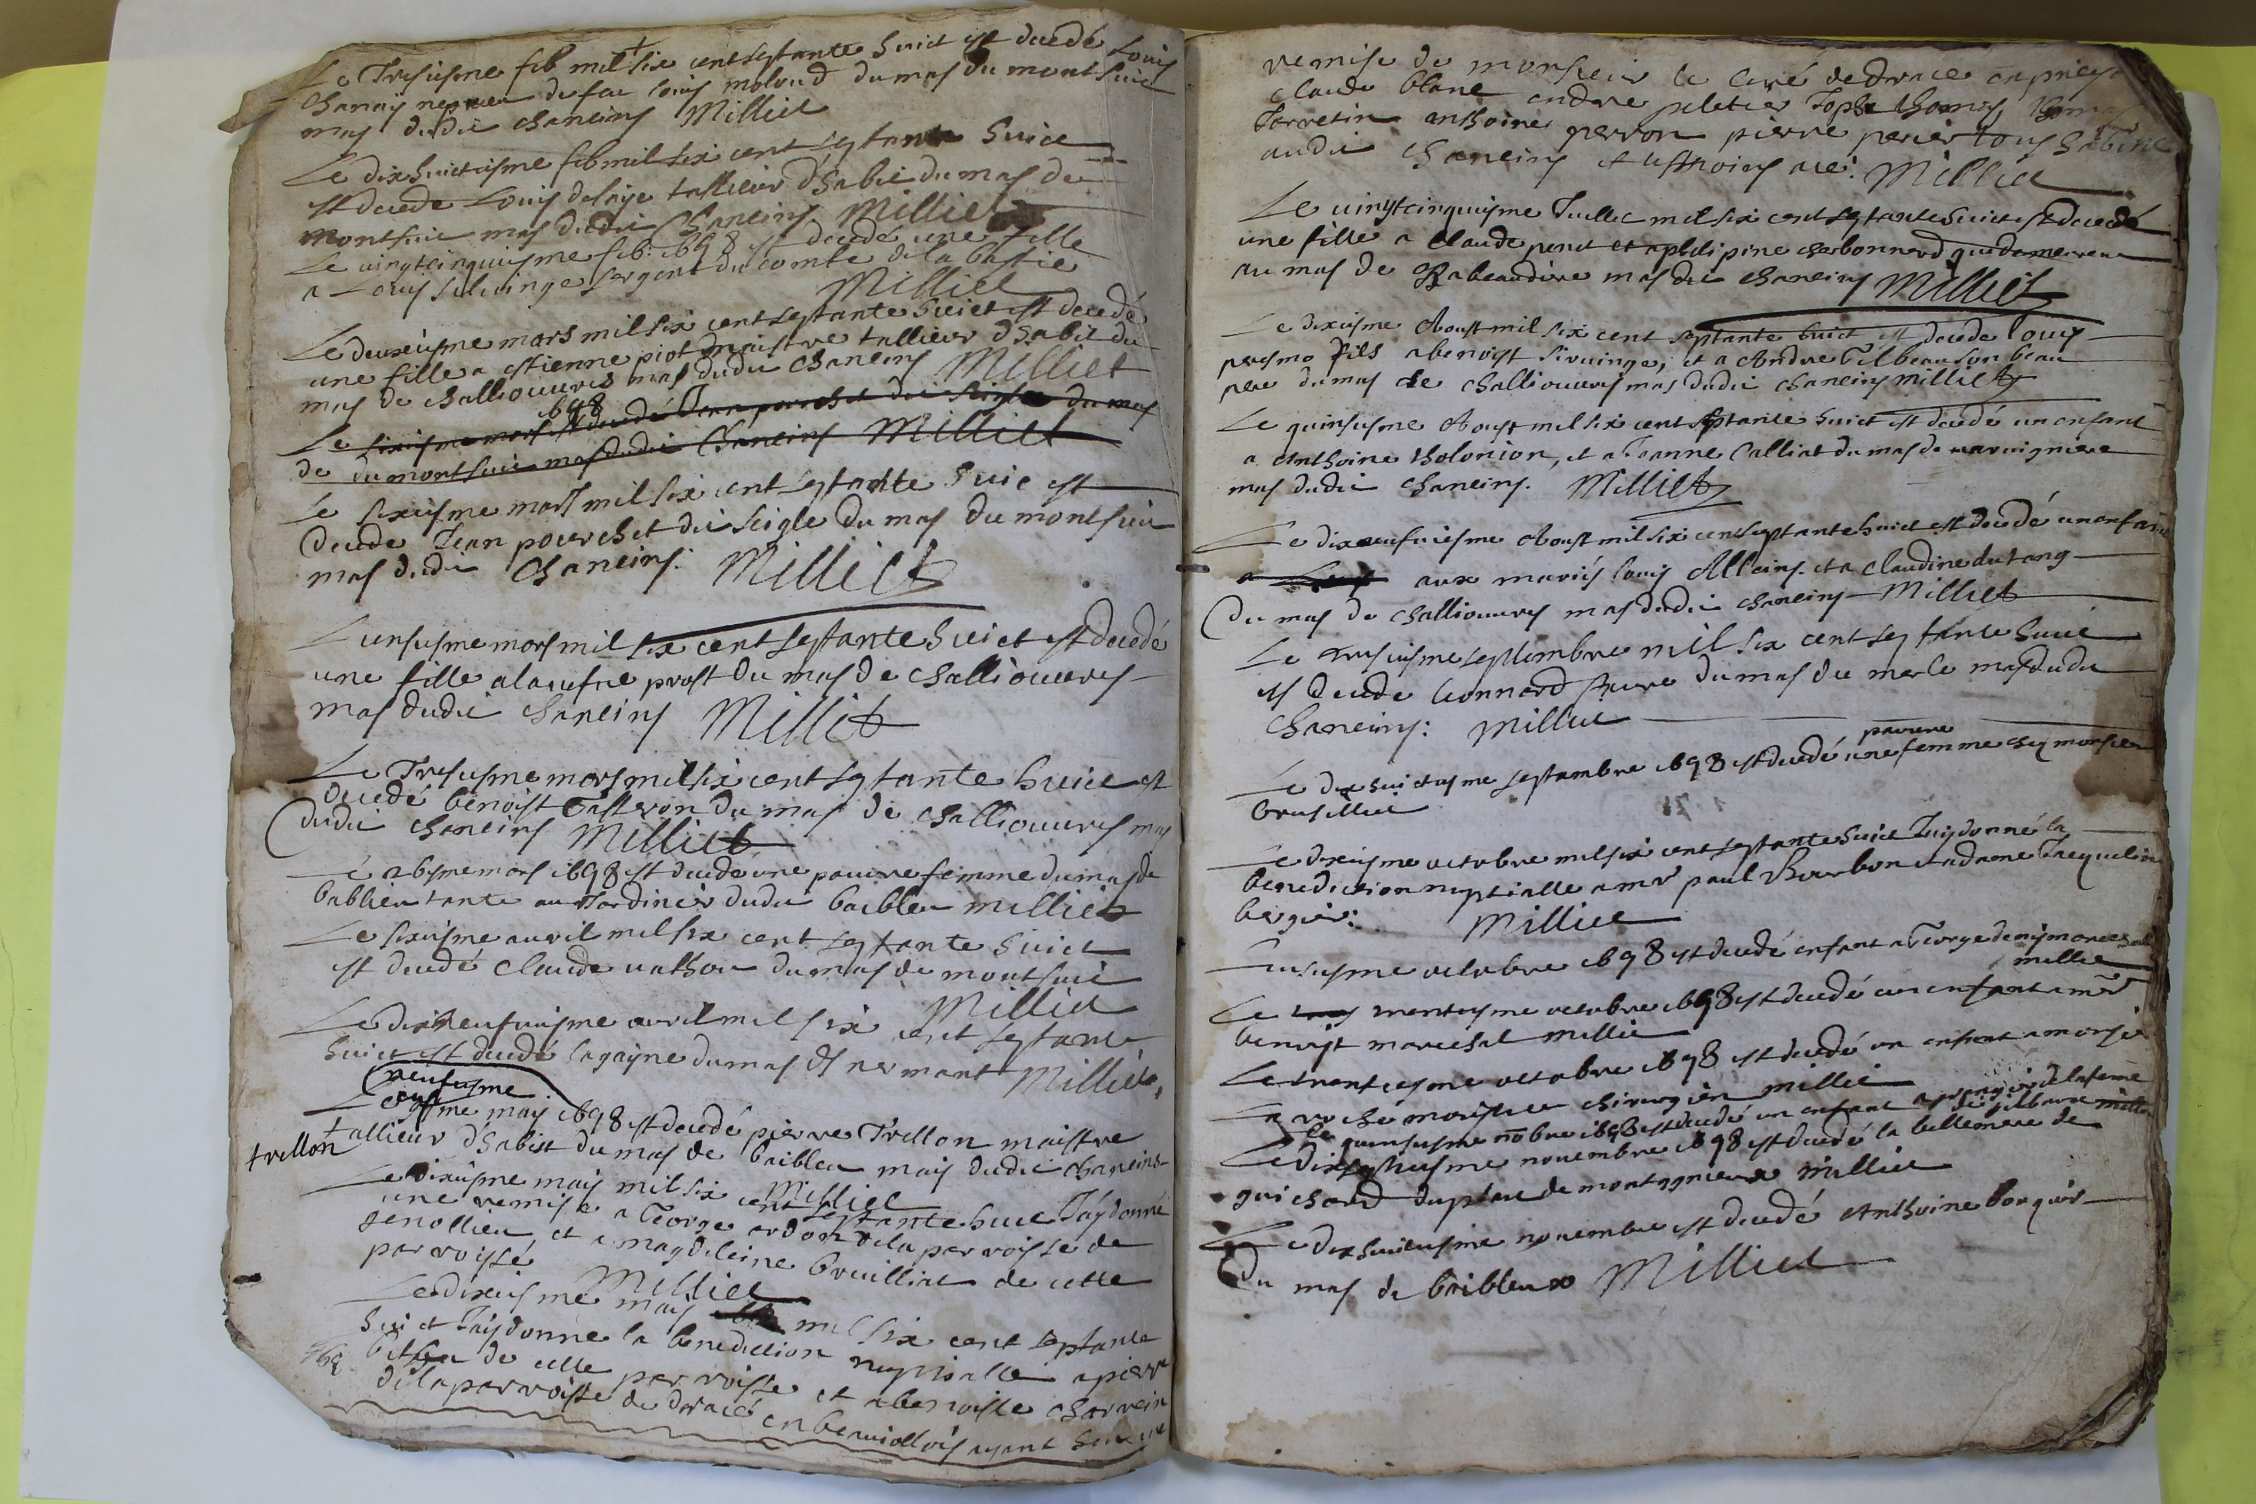 Le Tresiesme feb mil six cent septante huict est decedé Louis
Chanay nepveu de feu louis moloud du mas du montsuict
mas dudit chaneins Milliet
Le dixhuictiesme feb mil six cent septante huict
est decede Louis delaye tallieur d'habit du mas de
montsuict mas dudit Chaneins Milliet
Le vingtcinquiesme feb: 1698 est decedé une fille
a Louis siluinge sergent du comte de la bastie
Milliet
Le deuxiesme mars mil six cent septante huict est decedé
une fille a estienne piot maistre tallieur d'habit du
mas de challiouvres mas dudit chaneins Milliet
1698
Le sixiesme mars est decedé Jean pourchet dit seigle du mas
de du montsuict mas dudit Chaneins Milliet
Le sixiesme mars mil six cent septante huic est
decede Jean pourchet dit seigle du mas du montsuict
mas dudit Chaneins: Milliet
L'unsiesme mars mil six cent septante huict est decedé
une fille a la veufve prost du mas de challiouvres
mas dudit chaneins Milliet
Le Tresiesme mars mil six cent septante huict est
decedé benoist Tasteron du mas de challiouvres mas
dudit chaneins Milliet
Le 26sme mars 1698 est decede une pauvre femme du mas de
bablieu tante au Jardinier dudit baibleu milliet
Le sixiesme auvril mil six cent septante huict
est decedé claude vathou du mas de montsuict
Milliet
Le dixneufuiesme avril mil six cent septante
huict est decedé lagayne du mas de nermant Milliet
neufiesme
Le may 1698 est decedé pierre Trellon maistre
trellon
tallieur d'habist du mas de baibleu mais dudit chaneins
Milliet
Le dixiesme mais mil six cent septante huic Jay donné
une remise a George ardon de la parroisse de
genollieu, et a magdeleine bruilliat de cette
parroisse Milliet
Le dixiesme mais mil six cent septante
huict Jay donne la benediction nuptialle a pierre
de cette parroisse et a benoiste charvein
de la parroisse de dracé en beauiollois ayant heu une
remise de monsieur le curé de drace en pnce
claude blanc andre peletier Joph thomas
Torretin anthoine perron pierre perier tous habitent
audit chaneins et tesmoins avec: Milliet
Le vingtcinquiesme Juillet mil six cent septante huict est decedé
une fille a claude penet et a philipine charbonnard que demeurent
au mas de Rabeaudiere mas dit chaneins Milliet
Le dixiesme Aoust mil six cent septante huict est decede louis
presme fils a benoist siruinge, et a Andre Tilbeau son beau
pere du mas de challiouvres mas dudit chaneins milliet
Le quinsiesme Aoust mil six cent septante huict est decedé un enfant
a Anthoine tholonion, et a Jeanne Calliat du mas de varuigniere
mas dudit chaneins. Milliet
Le dixneufuiesme Aoust mil six cent septante huict est decedé un enfant
aux mariés louis Alleins. et a claudine du tang
du mas de challiouvres mas dudit chaneins Milliet
Le Tresiesme septembre mil six cent septante huict
est decede Leonnard faure du mas du merle mas dudit
Chaneins: milliet
pauvre
Le dix huictiesme septambre 1698 est decedé une femme chez monsieur
brusillet
Le dixiesme octobre mil six cent septante huict Jay donné la
benediction nuptialle a mr paul Bourbon et a dame Jacqueline
bergier: Milliet
L'unsiesme octobre 1698 est decedé enfant a George denis marechal
millie
Le trentiesme octobre 1698 est decedé un enfant a mr
benoist marechal millie
Le trentiesme octobre 1698 est decedé un enfant a monsier
la roche monsieur chirurgien millie
Le quinsiesme nobre 1698 est decedé un enfant a de la feme
de gilbarre millie
Le dixseptiesme novembre 1698 est decedé la bellemere de
guichard du place de montagnieux millie
Le dixhuictiesme novembre est decedé Anthoine borquier
du mas de baibleux Milliet